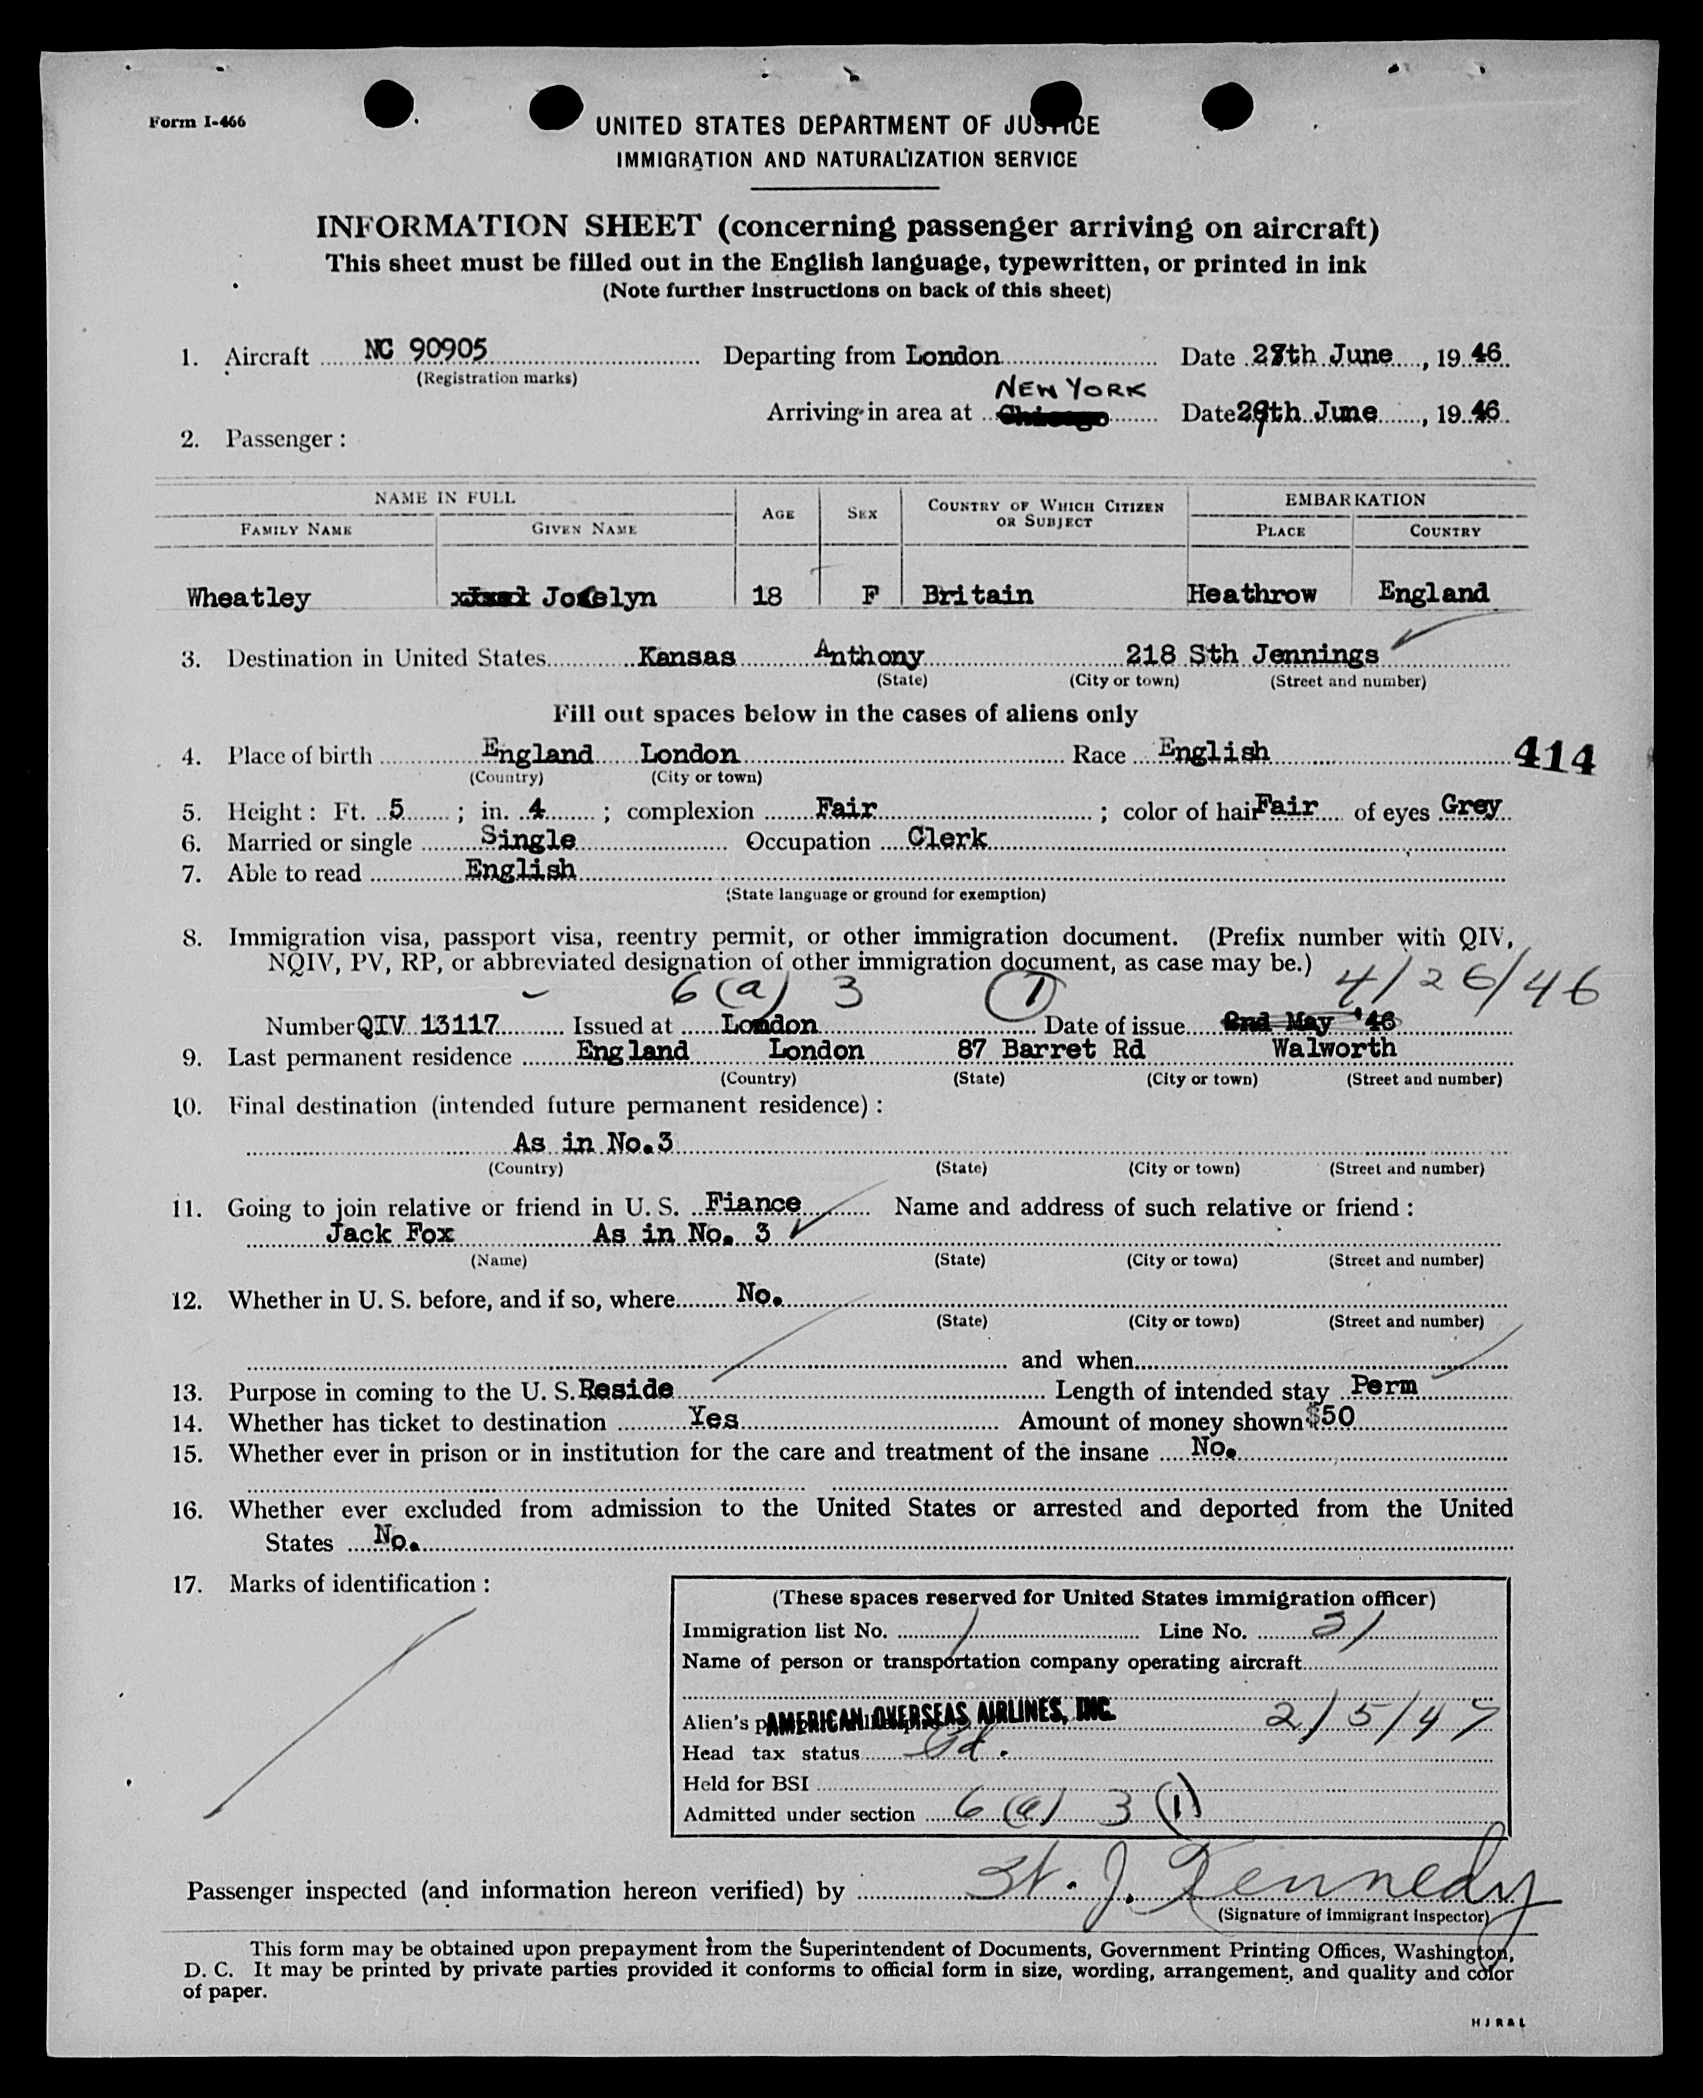 Form I-466
UNITED STATES DEPARTMENT OF JUSTICE
IMMIGRATION AND NATURALIZATION SERVICE
INFORMATION SHEET (concerning passenger arriving on aircraft)
This sheet must be filled out in the English language, typewritten, or printed in ink
(Note further instructions on back of this sheet)
1. Aircraft NC 90905 Departing from London Date 28th June, 1946
(Registration marks)
NEW YORK
Arriving in area at Chicago Date 29th June, 1946
2. Passenger :
NAME IN FULL AGE SEX COUNTRY OF WHICH CITIZEN OR SUBJECT EMBARKATION
FAMILY NAME GIVEN NAME PLACE COUNTRY
Wheatley Jocelyn 18 F Britain Heathrow England
3. Destination in United States Kansas Anthony 218 Sth Jennings
(State) (City or town) (Street and number)
Fill out spaces below in the cases of aliens only
4. Place of birth England London Race English 414
(Country) (City or town)
5. Height : Ft. 5 ; in. 4 ; complexion Fair ; color of hair Fair of eyes Grey
6. Married or single Single Occupation Clerk
7. Able to read English
(State language or ground for exemption)
8. Immigration visa, passport visa, reentry permit, or other immigration document. (Prefix number with QIV,
NQIV, PV, RP, or abbreviated designation of other immigration document, as case may be.)
6 (a) 3 (1) 4/26/46
Number QIV 13117 Issued at London Date of issue 2nd May '46
9. Last permanent residence England London 87 Barret Rd Walworth
(Country) (State) (City or town) (Street and number)
10. Final destination (intended future permanent residence) :
As in No.3
(Country) (State) (City or town) (Street and number)
11. Going to join relative or friend in U. S. Fiance Name and address of such relative or friend :
Jack Fox As in No. 3
(Name) (State) (City or town) (Street and number)
12. Whether in U. S. before, and if so, where No.
(State) (City or town) (Street and number)
and when
13. Purpose in coming to the U. S. Reside Length of intended stay Perm
14. Whether has ticket to destination Yes Amount of money shown $50
15. Whether ever in prison or in institution for the care and treatment of the insane No.
16. Whether ever excluded from admission to the United States or arrested and deported from the United
States No.
17. Marks of identification :
(These spaces reserved for United States immigration officer)
Immigration list No. 1 Line No. 21
Name of person or transportation company operating aircraft
Alien's AMERICAN OVERSEAS AIRLINES, INC. 2/5/47
Head tax status Pd.
Held for BSI
Admitted under section 6 (a) 3 (1)
Passenger inspected (and information hereon verified) by J. Kennedy
(Signature of immigrant inspector)
This form may be obtained upon prepayment from the Superintendent of Documents, Government Printing Offices, Washington,
D. C. It may be printed by private parties provided it conforms to official form in size, wording, arrangement, and quality and color
of paper.
HJR&L